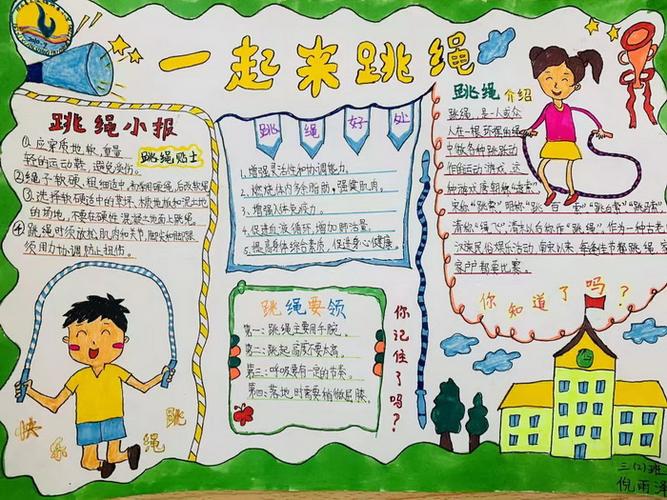 一起来跳绳
跳绳小报
跳绳贴士
①应穿质地软,重量
轻的运动鞋,避免
②绳子软硬、粗细适中,
③选择软硬适中的草坪、木质地板和泥土地
的场地,不要在硬性混凝土地面上跳绳。
④跳绳时须放松肌肉和关节,脚尖和脚跟
须用力协调,防止扭伤。
快乐跳绳
跳绳好处
1.增强灵活性和协调能力。
2.燃烧体内多余脂肪,强健肌肉。
3.增强人体免疫力。
4.促进血液循环,增加肺活量。
5.提高身体综合素质,促进身心健康。
跳绳要领
第一:跳绳主要用手腕。
第二:跳起高度不要太高。
第三:呼吸要有一定的节奏。
第四:落地时需要稍微屈膝。
你记住了吗?
跳绳介绍
跳绳,是一人或众
人在一根环摆的绳
中做各种跳跃动
作的运动游戏。这
种游戏唐朝称“透索”,
宋称“跳索”,明称“跳百索”“跳白索”“跳马索”
清称“绳飞”,清末以后称作“跳绳”。作为一种古老
汉族民俗娱乐活动,南宋以来,每逢佳节都跳绳
你知道了吗?
三(2)班
倪雨